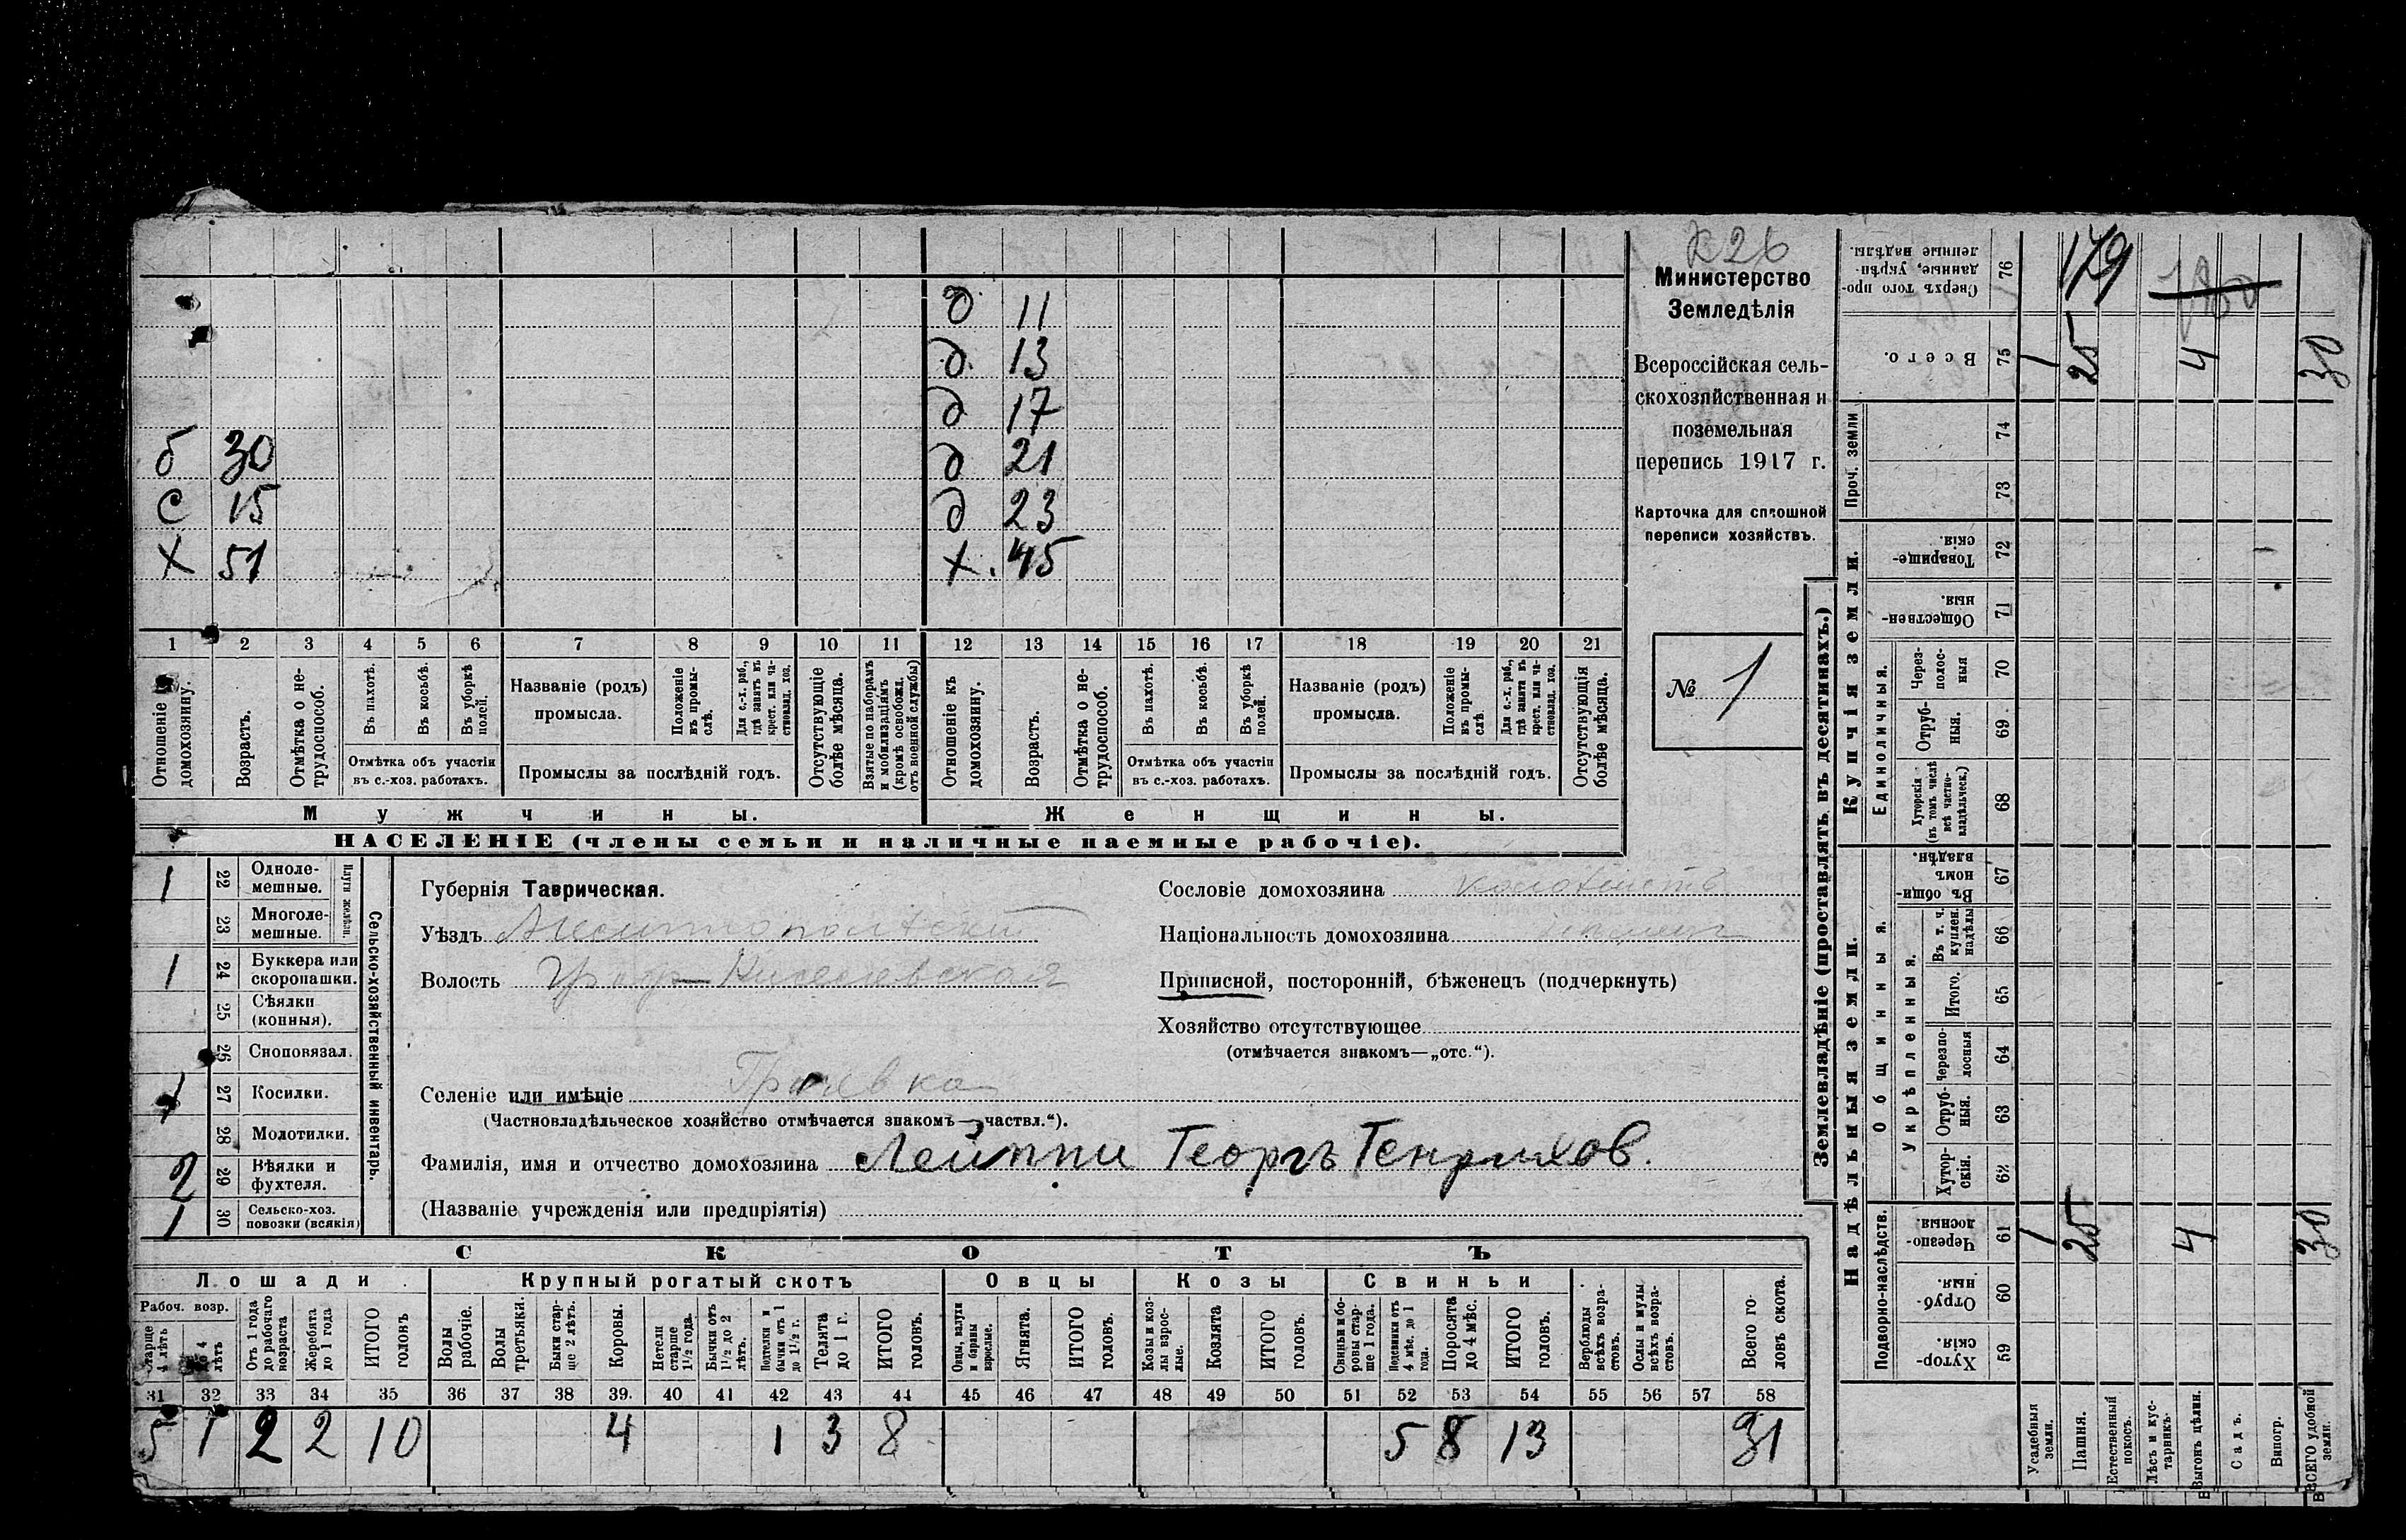 К26
Министерство
Земледѣлія
Всероссійская сель-
скохозяйственная и
поземельная
перепись 1917 г.
Карточка для сплошной
переписи хозяйствъ.
№ 1
д 11
д. 13
д 17
б 30 д 21
с 15 д 23
х 51 х. 45
1 2 3 4 5 6 7 8 9 10 11 12 13 14 15 16 17 18 19 20 21
Отношеніе къ домохозяину.
Возрастъ.
Отмѣтка о не-трудоспособ.
Въ пахотѣ.
Въ косьбѣ.
Въ уборкѣ полей.
Отмѣтка объ участіи
въ с.-хоз. работахъ.
Названіе (родъ)
промысла.
Положеніе въ промы-слѣ.
Для с.-х. раб., гдѣ занятъ въ крест. или ча-стновлад. хоз.
Промыслы за послѣдній годъ.
Отсутствующіе болѣе мѣсяца.
Взятые по наборамъ и мобилизаціямъ (кромѣ освобожд. отъ военной службы)
Отношеніе къ домохозяину.
Возрастъ.
Отмѣтка о не-трудоспособ.
Въ пахотѣ.
Въ косьбѣ.
Въ уборкѣ полей.
Отмѣтка объ участіи
въ с.-хоз. работахъ.
Названіе (родъ)
промысла.
Положеніе въ промы-слѣ.
Для с.-х. раб., гдѣ занята въ крест. или ча-стновлад. хоз.
Промыслы за послѣдній годъ.
Отсутствующія болѣе мѣсяца.
Мужчины. Женщины.
НАСЕЛЕНІЕ (члены семьи и наличные наемные рабочіе).
Сельско-хозяйственный инвентарь.
Плуги желѣзн.
1 22 Одноле-мешные.
23 Многоле-мешные.
1 24 Буккера или скоропашки.
25 Сѣялки (конныя).
26 Сноповязал.
1 27 Косилки.
28 Молотилки.
2 29 Вѣялки и фухтеля.
1 30 Сельско-хоз. повозки (всякія)
Губернія Таврическая.
Уѣздъ Мелитопольскій
Волость
Селеніе или имѣніе
(Частновладѣльческое хозяйство отмѣчается знакомъ—„частвл.“).
Фамилія, имя и отчество домохозяина Лейппи Георгъ Генрихов.
(Названіе учрежденія или предпріятія)
Сословіе домохозяина колонистъ
Національность домохозяина
Приписной, посторонній, бѣженецъ (подчеркнуть)
Хозяйство отсутствующее
(отмѣчается знакомъ—„отс.“).
СКОТЪ
Лошади Крупный рогатый скотъ Овцы Козы Свиньи
Рабоч. возр.
Старше 4 лѣтъ
До 4 лѣтъ
Отъ 1 года до рабочаго возраста
Жеребята до 1 года
ИТОГО головъ
Волы рабочіе.
Волы третьяки.
Быки стар-ше 2 лѣтъ.
Коровы.
Нетели старше 1 1/2 года.
Бычки отъ 1 1/2 до 2 лѣтъ.
Потелки и бычки отъ 1 до 1 1/2 г.
Телята до 1 г.
ИТОГО головъ.
Овцы, валухи и бараны взрослые.
Ягнята.
ИТОГО головъ.
Козы и коз-лы взрос-лые.
Козлята
ИТОГО головъ.
Свиньи и бо-ровы стар-ше 1 года.
Подсвинки отъ 4 мѣс. до 1 года.
Поросята до 4 мѣс.
ИТОГО головъ.
Верблюды всѣхъ возра-стовъ.
Ослы и мулы всѣхъ возра-стовъ.
Всего го-ловъ скота.
31 32 33 34 35 36 37 38 39. 40 41 42 43 44 45 46 47 48 49 50 51 52 53 54 55 56 57 58
5 1 2 2 10 4 1 3 8 5 8 13 31
Землевладѣніе (проставлять въ десятинахъ.)
Купчія земли.
Надѣльныя земли.
Сверхъ того про-данные, укрѣп-ленные надѣлы. 76 179
Всего. 75 1 25 4 30
Проч. земли 74
73
Товарище-скія. 72
Обществен-ныя 71
Единоличныя.
Через-полос-ныя 70
Отруб-ныя. 69
Хуторскія (въ томъ числѣ всѣ частно-владѣльческ.) 68
Общинныя.
Въ общи-номъ владѣн. 67
Укрѣпленныя.
Въ т. ч. куплен. надѣлы 66
Итого. 65
Черезпо-лосныя 64
Отруб-ныя. 63
Хутор-скія. 62
Подворно-наслѣдств.
Черезпо-лосныя. 61 1 25 4 30
Отруб-ныя. 60
Хутор-скія. 59
Усадебныя земли.
Пашня.
Естественный покосъ.
Лѣсъ и кус-тарникъ.
Выгонъ цѣлин.
Садъ.
Виногр.
ВСЕГО удобной земли.